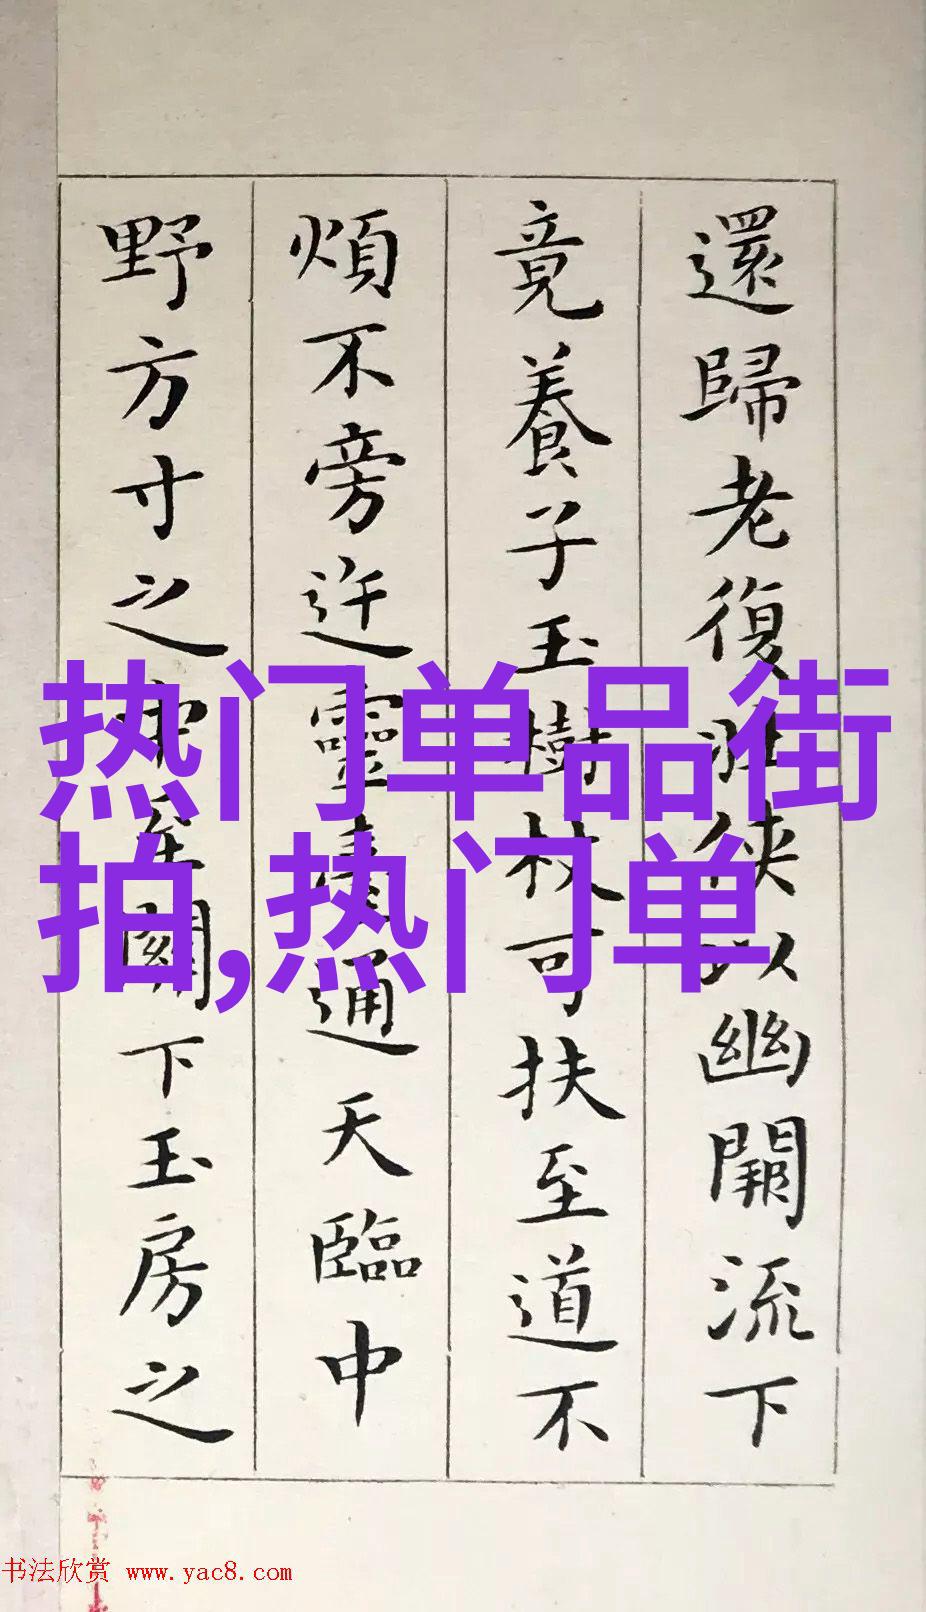 還歸老復壯俠以幽闕流下
竟養子玉樹杖可扶至道不
煩不旁迕靈臺通天臨中
野方寸之中至關下玉房之
热门单品街
拍,热门单
书法欣赏 www.yac8.com